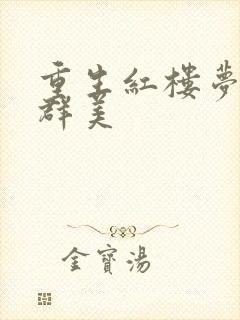 重生紅樓夢
群美
金寶湯